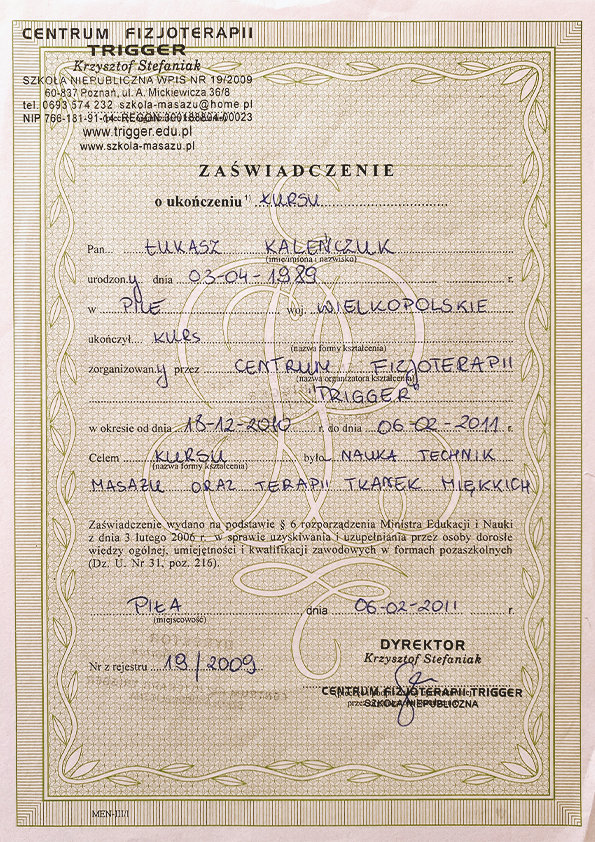 CENTRUM FIZJOTERAPII
TRIGGER
Krzysztof Stefaniak
SZKOŁA NIEPUBLICZNA WPIS NR 19/2009
60-837 Poznań, ul. A. Mickiewicza 36/8
tel. 0693 574 232 szkola-masazu@home.pl
NIP 766-181-91-14 REGON
www.trigger.edu.pl
www.szkola-masazu.pl
ZAŚWIADCZENIE
o ukończeniu 1) KURSU
Pan ŁUKASZ KALEŃCZUK
(imię/imiona i nazwisko)
urodzony dnia 03-04-1989 r.
w PILE woj. WIELKOPOLSKIE
ukończył KURS
(nazwa formy kształcenia)
zorganizowany przez CENTRUM FIZJOTERAPII
(nazwa organizatora kształcenia)
"TRIGGER"
w okresie od dnia 18-12-2010 r. do dnia 06-02-2011 r.
Celem KURSU było NAUKA TECHNIK
(nazwa formy kształcenia)
MASAŻU ORAZ TERAPII TKANEK MIĘKKICH
Zaświadczenie wydano na podstawie § 6 rozporządzenia Ministra Edukacji i Nauki
z dnia 3 lutego 2006 r. w sprawie uzyskiwania i uzupełniania przez osoby dorosłe
wiedzy ogólnej, umiejętności i kwalifikacji zawodowych w formach pozaszkolnych
(Dz. U. Nr 31, poz. 216).
PIŁA dnia 06-02-2011 r.
(miejscowość)
DYREKTOR
Krzysztof Stefaniak
Nr z rejestru 19/2009
CENTRUM FIZJOTERAPII TRIGGER
SZKOŁA NIEPUBLICZNA
MEN-III/1